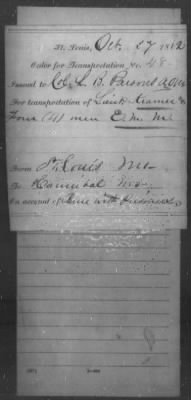 St. Louis, Oct. 27 1862
Order for Transportation No. 48.
Issued to Col. L. B. Parsons AQM
For transportation of Lieut. Kramer &
Four (4) men E. M. M.
From St. Louis Mo.
To Hannibal Mo.
On account of